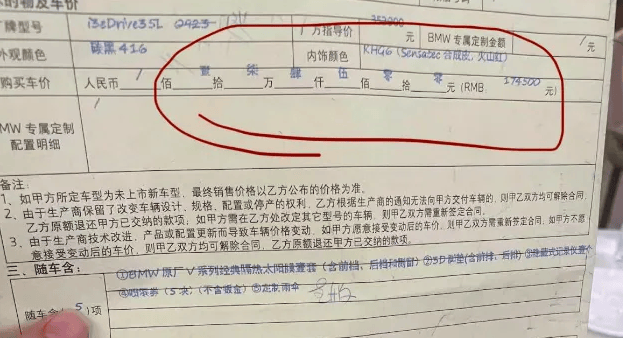 的物及车价
厂牌型号 i3eDrive35L 厂方指导价 353900 元 BMW 专属定制金额 / 元
外观颜色 碳黑416 内饰颜色 KHG6 (Sensatec 合成皮, 火山红)
购买车价 人民币 / 佰 壹 拾 柒 万 肆 仟 伍 佰 零 拾 零 元 (RMB. 174500 元)
BMW 专属定制
配置明细
备注:
1、如甲方所定车型为未上市新车型,最终销售价格以乙方公布的价格为准。
2、由于生产商保留了改变车辆设计、规格、配置或停产的权利,乙方根据生产商的通知无法向甲方交付车辆的,则甲乙双方均可解除合同,
乙方原额退还甲方已交纳的款项;如甲方需在乙方处改定其它型号的车辆,则甲乙双方需重新签定合同。
3、由于生产商技术改进、产品或配置更新而导致车辆价格变动,如甲方愿意接受变动后的车价,则甲乙双方需重新签定合同,如甲方不愿
意接受变动后的车价,则甲乙双方均可解除合同,乙方原额退还甲方已交纳的款项。
三、随车含:
①BMW 原厂 V 系列经典隔热太阳膜壹套 (含前档、后档和侧窗) ②3D脚垫(含前排、后排) ③隐藏式记录仪壹个
随车含( 5 )项 ④喷漆券 (5 次, (不含钣金) ⑤定制雨伞